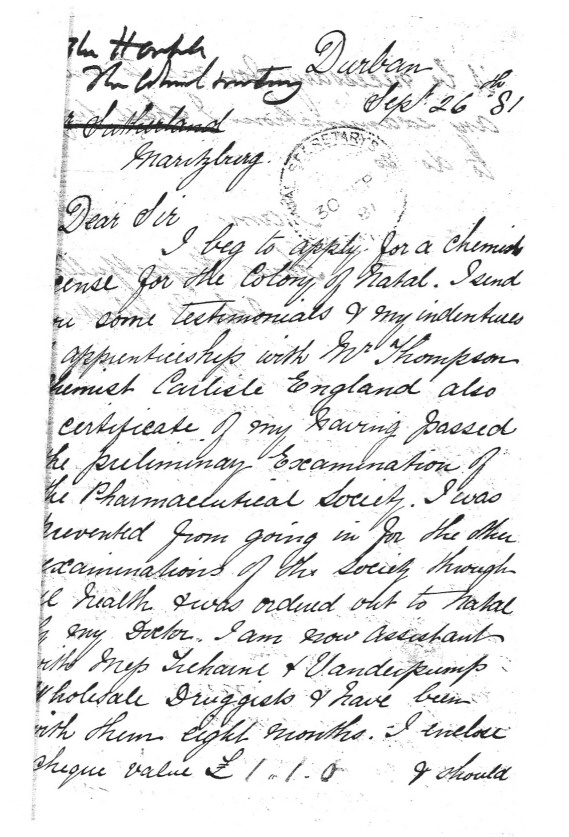 Durban
Sept. 26th 81
The Honble
The Colonial Secretary
r Sutherland
Maritzburg.
SECRETARY'S
30 SEP 81
Dear Sir
I beg to apply for a Chemists
cense for the Colony of Natal. I send
ou some testimonials & my indentures
apprenticeship with Mr Thompson
hemist Carlisle England also
certificate of my having passed
he preliminary Examination of
he Pharmaceutical Society. I was
revented from going in for the other
examinations of the Society through
ill health & was ordered out to Natal
by my Doctor. I am now assistant
with Mess & Vanderpump
Wholesale Druggists & have been
with them eight months. I enclose
cheque value £1.1.0 & should